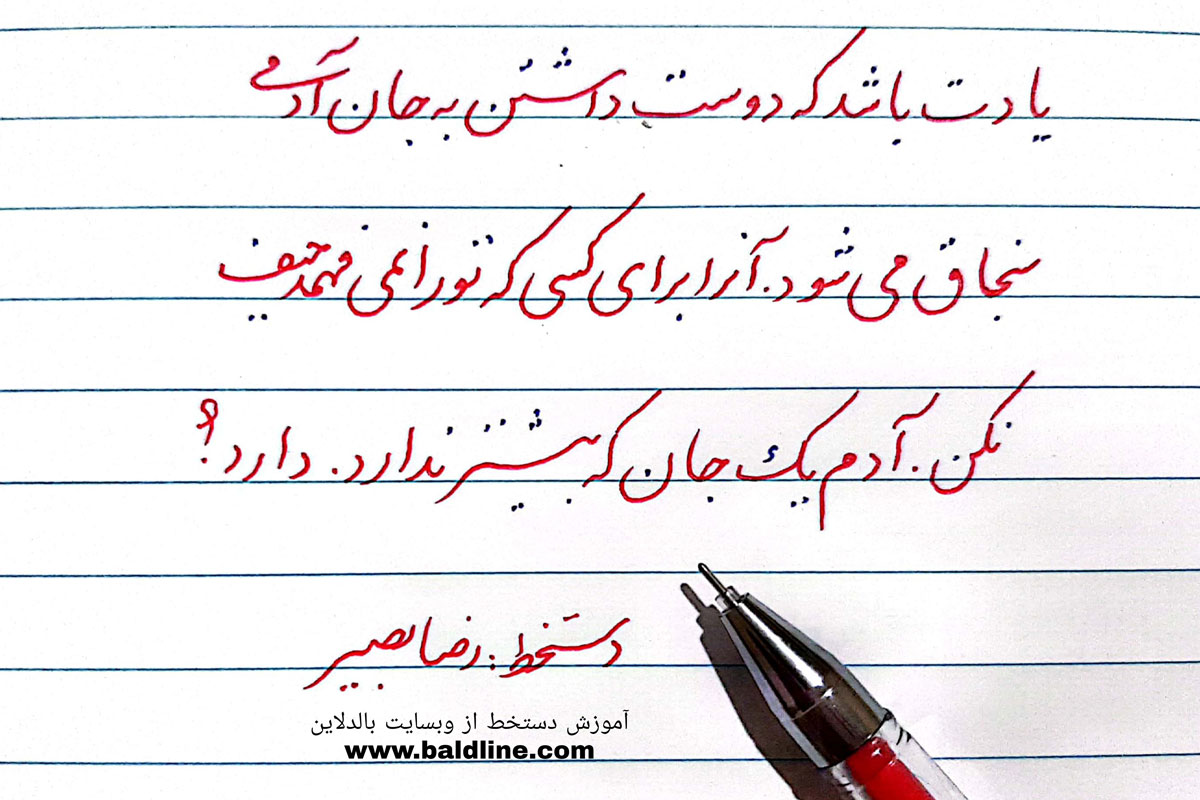 یادت باشد که دوست داشتن به جان آدمی
سنجاق می شود. آنرا برای کسی که تو را نمی فهمد حیف
نکن. آدم یک جان که بیشتر ندارد. دارد؟
دستخط: رضا بصیر
آموزش دستخط از وبسایت بالدلاین
www.baldline.com